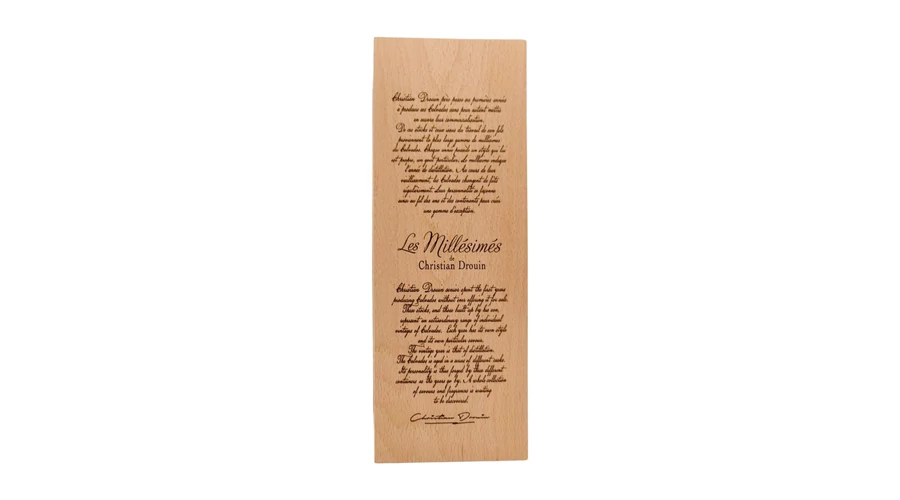 Christian Drouin père passa ses premières années
à produire ses Calvados sans pour autant mettre
en oeuvre leur commercialisation.
De ces stocks et ceux issus du travail de son fils
proviennent la plus large gamme de millésimes
de Calvados. Chaque année possède un style qui lui
est propre, un goût particulier. Le millésime indique
l'année de distillation. Au cours de leur
vieillissement, les Calvados changent de fûts
régulièrement. Leur personnalité se façonne
ainsi au fil des ans et des contenants pour créer
une gamme d'exception.
Les Millésimés
de
Christian Drouin
Christian Drouin senior spent the first years
producing Calvados without ever offering it for sale.
These stocks, and those built up by his son,
represent an extraordinary range of individual
vintages of Calvados. Each year has its own style
and its own particular savour.
The vintage year is that of distillation.
The Calvados is aged in a series of different casks.
Its personality is thus forged by these different
containers as the years go by. A whole collection
of savours and fragrances is waiting
to be discovered.
Christian Drouin